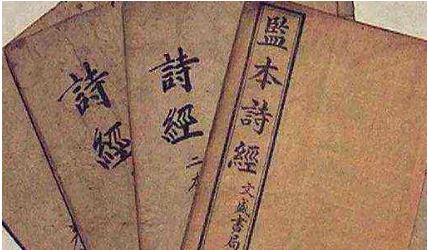 詩經
詩經
監本詩經
文盛書局